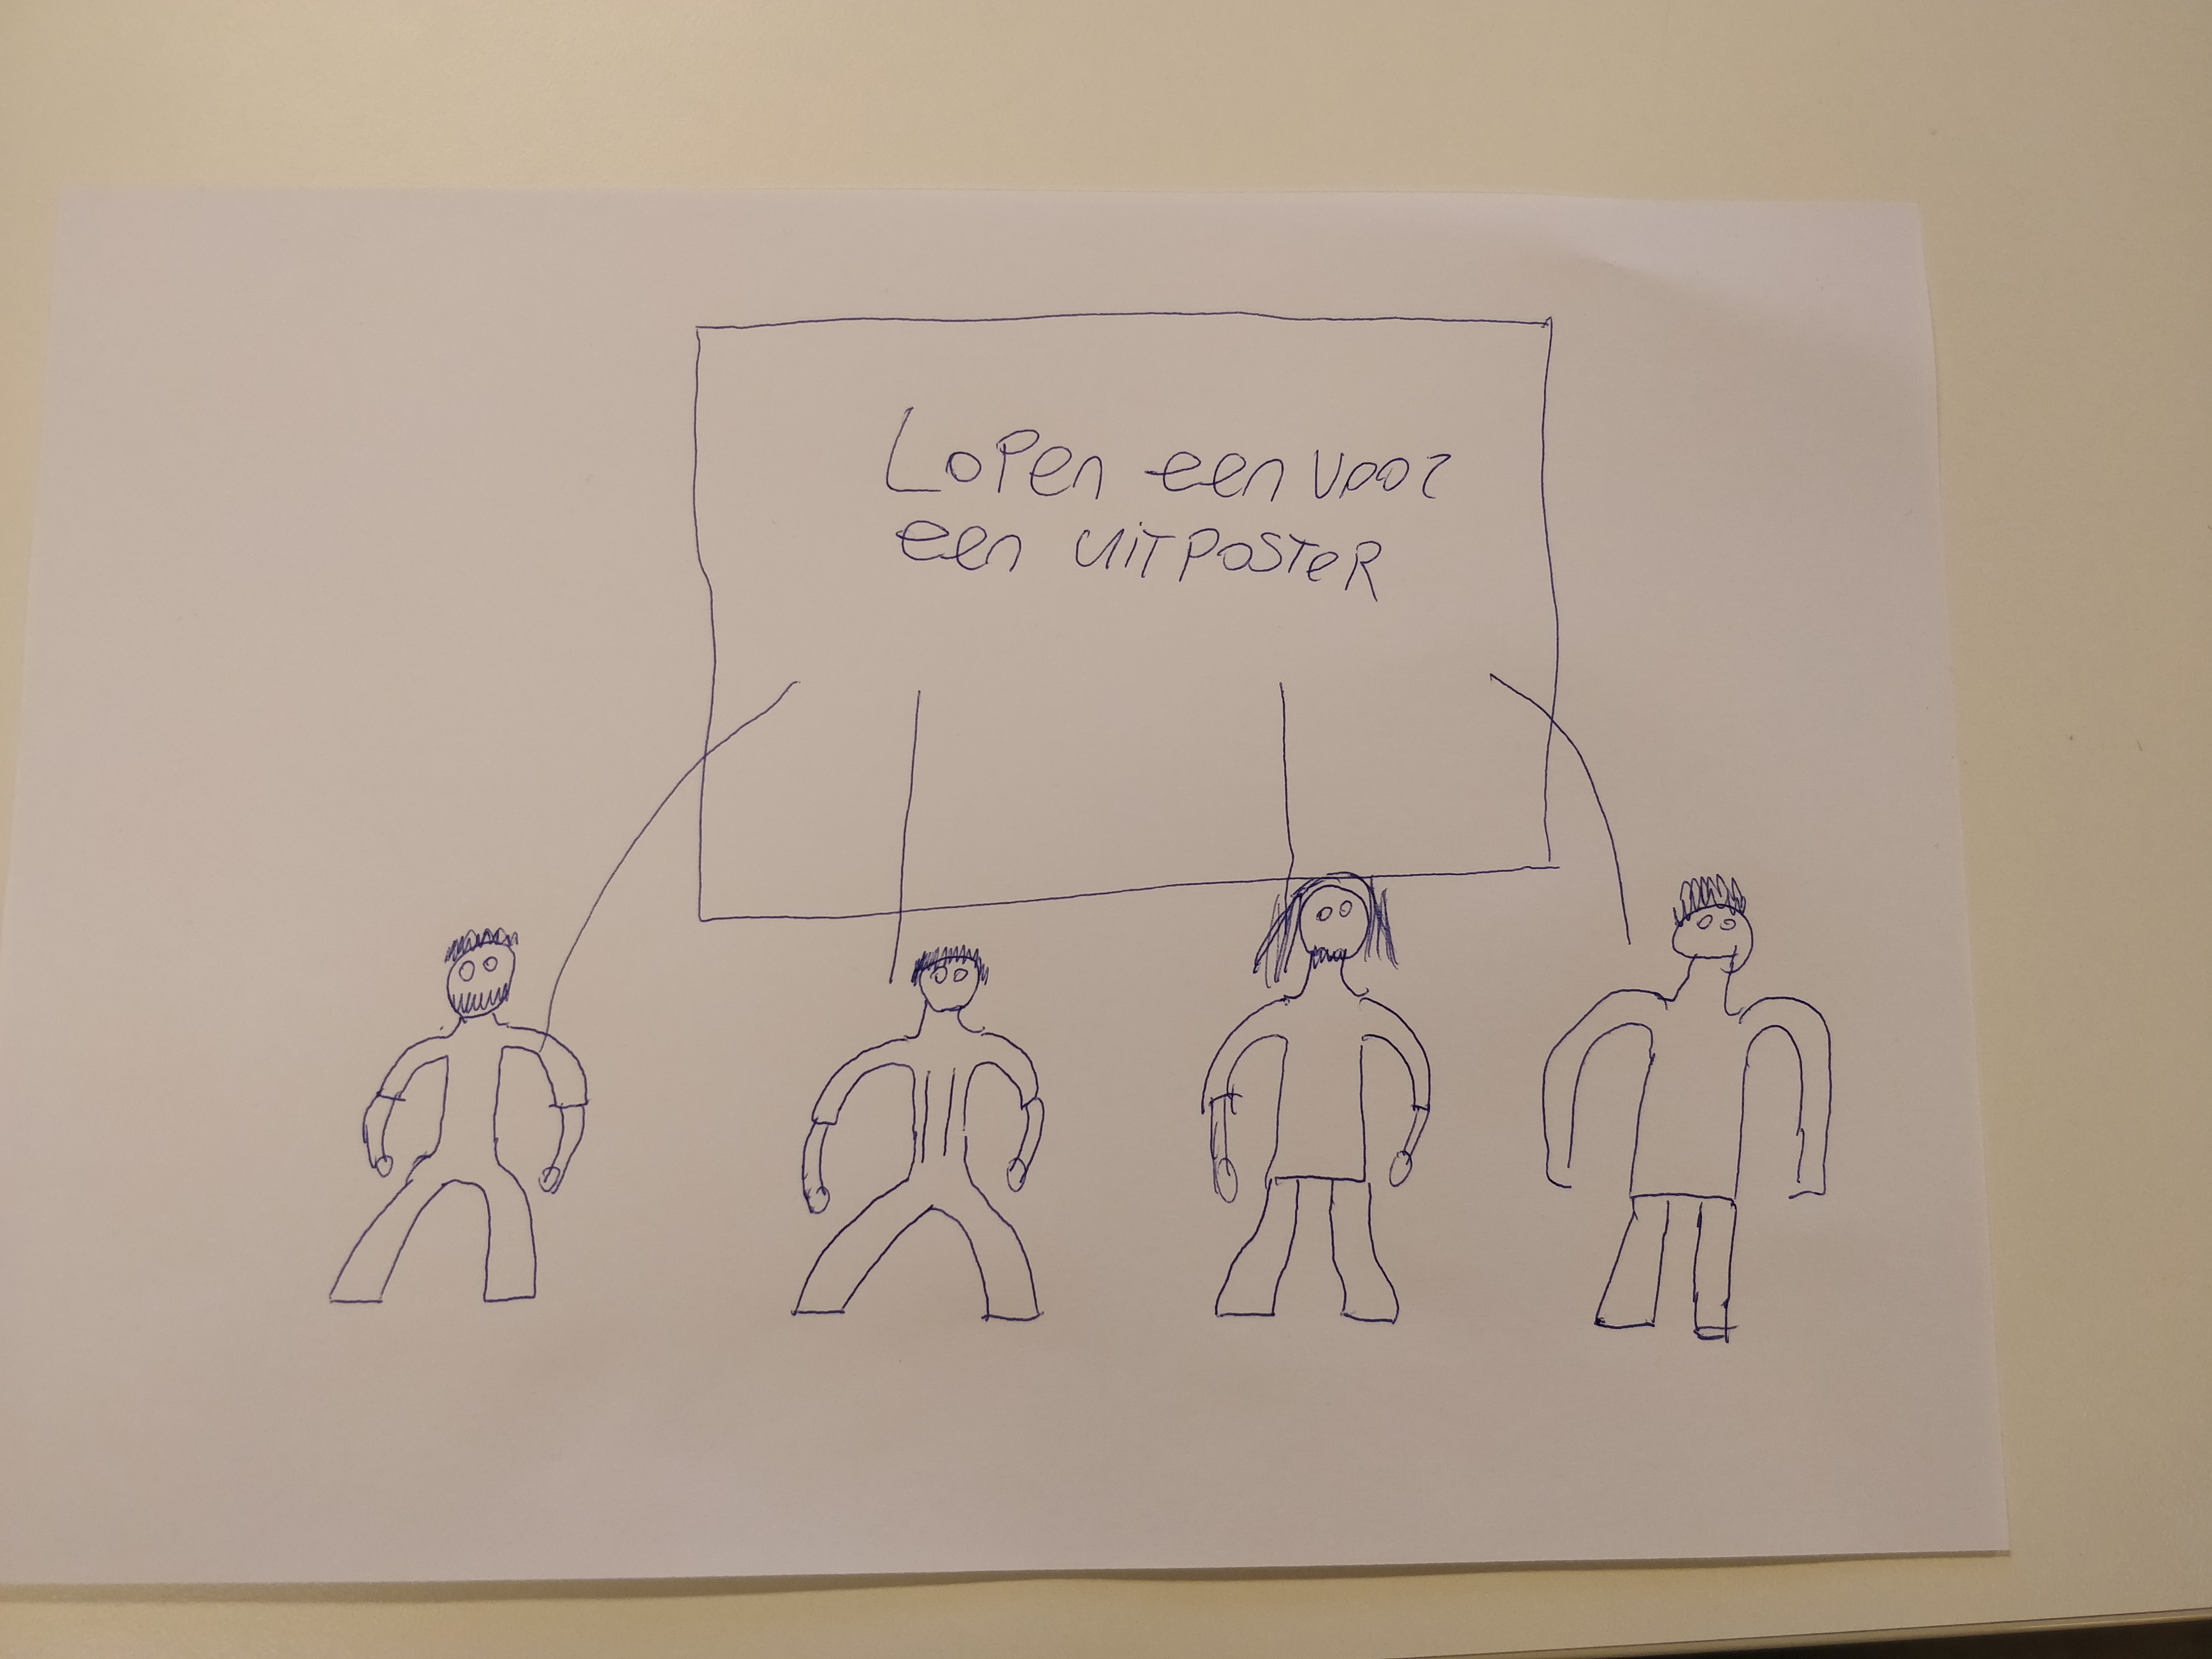 Lopen een voor
een uitposter